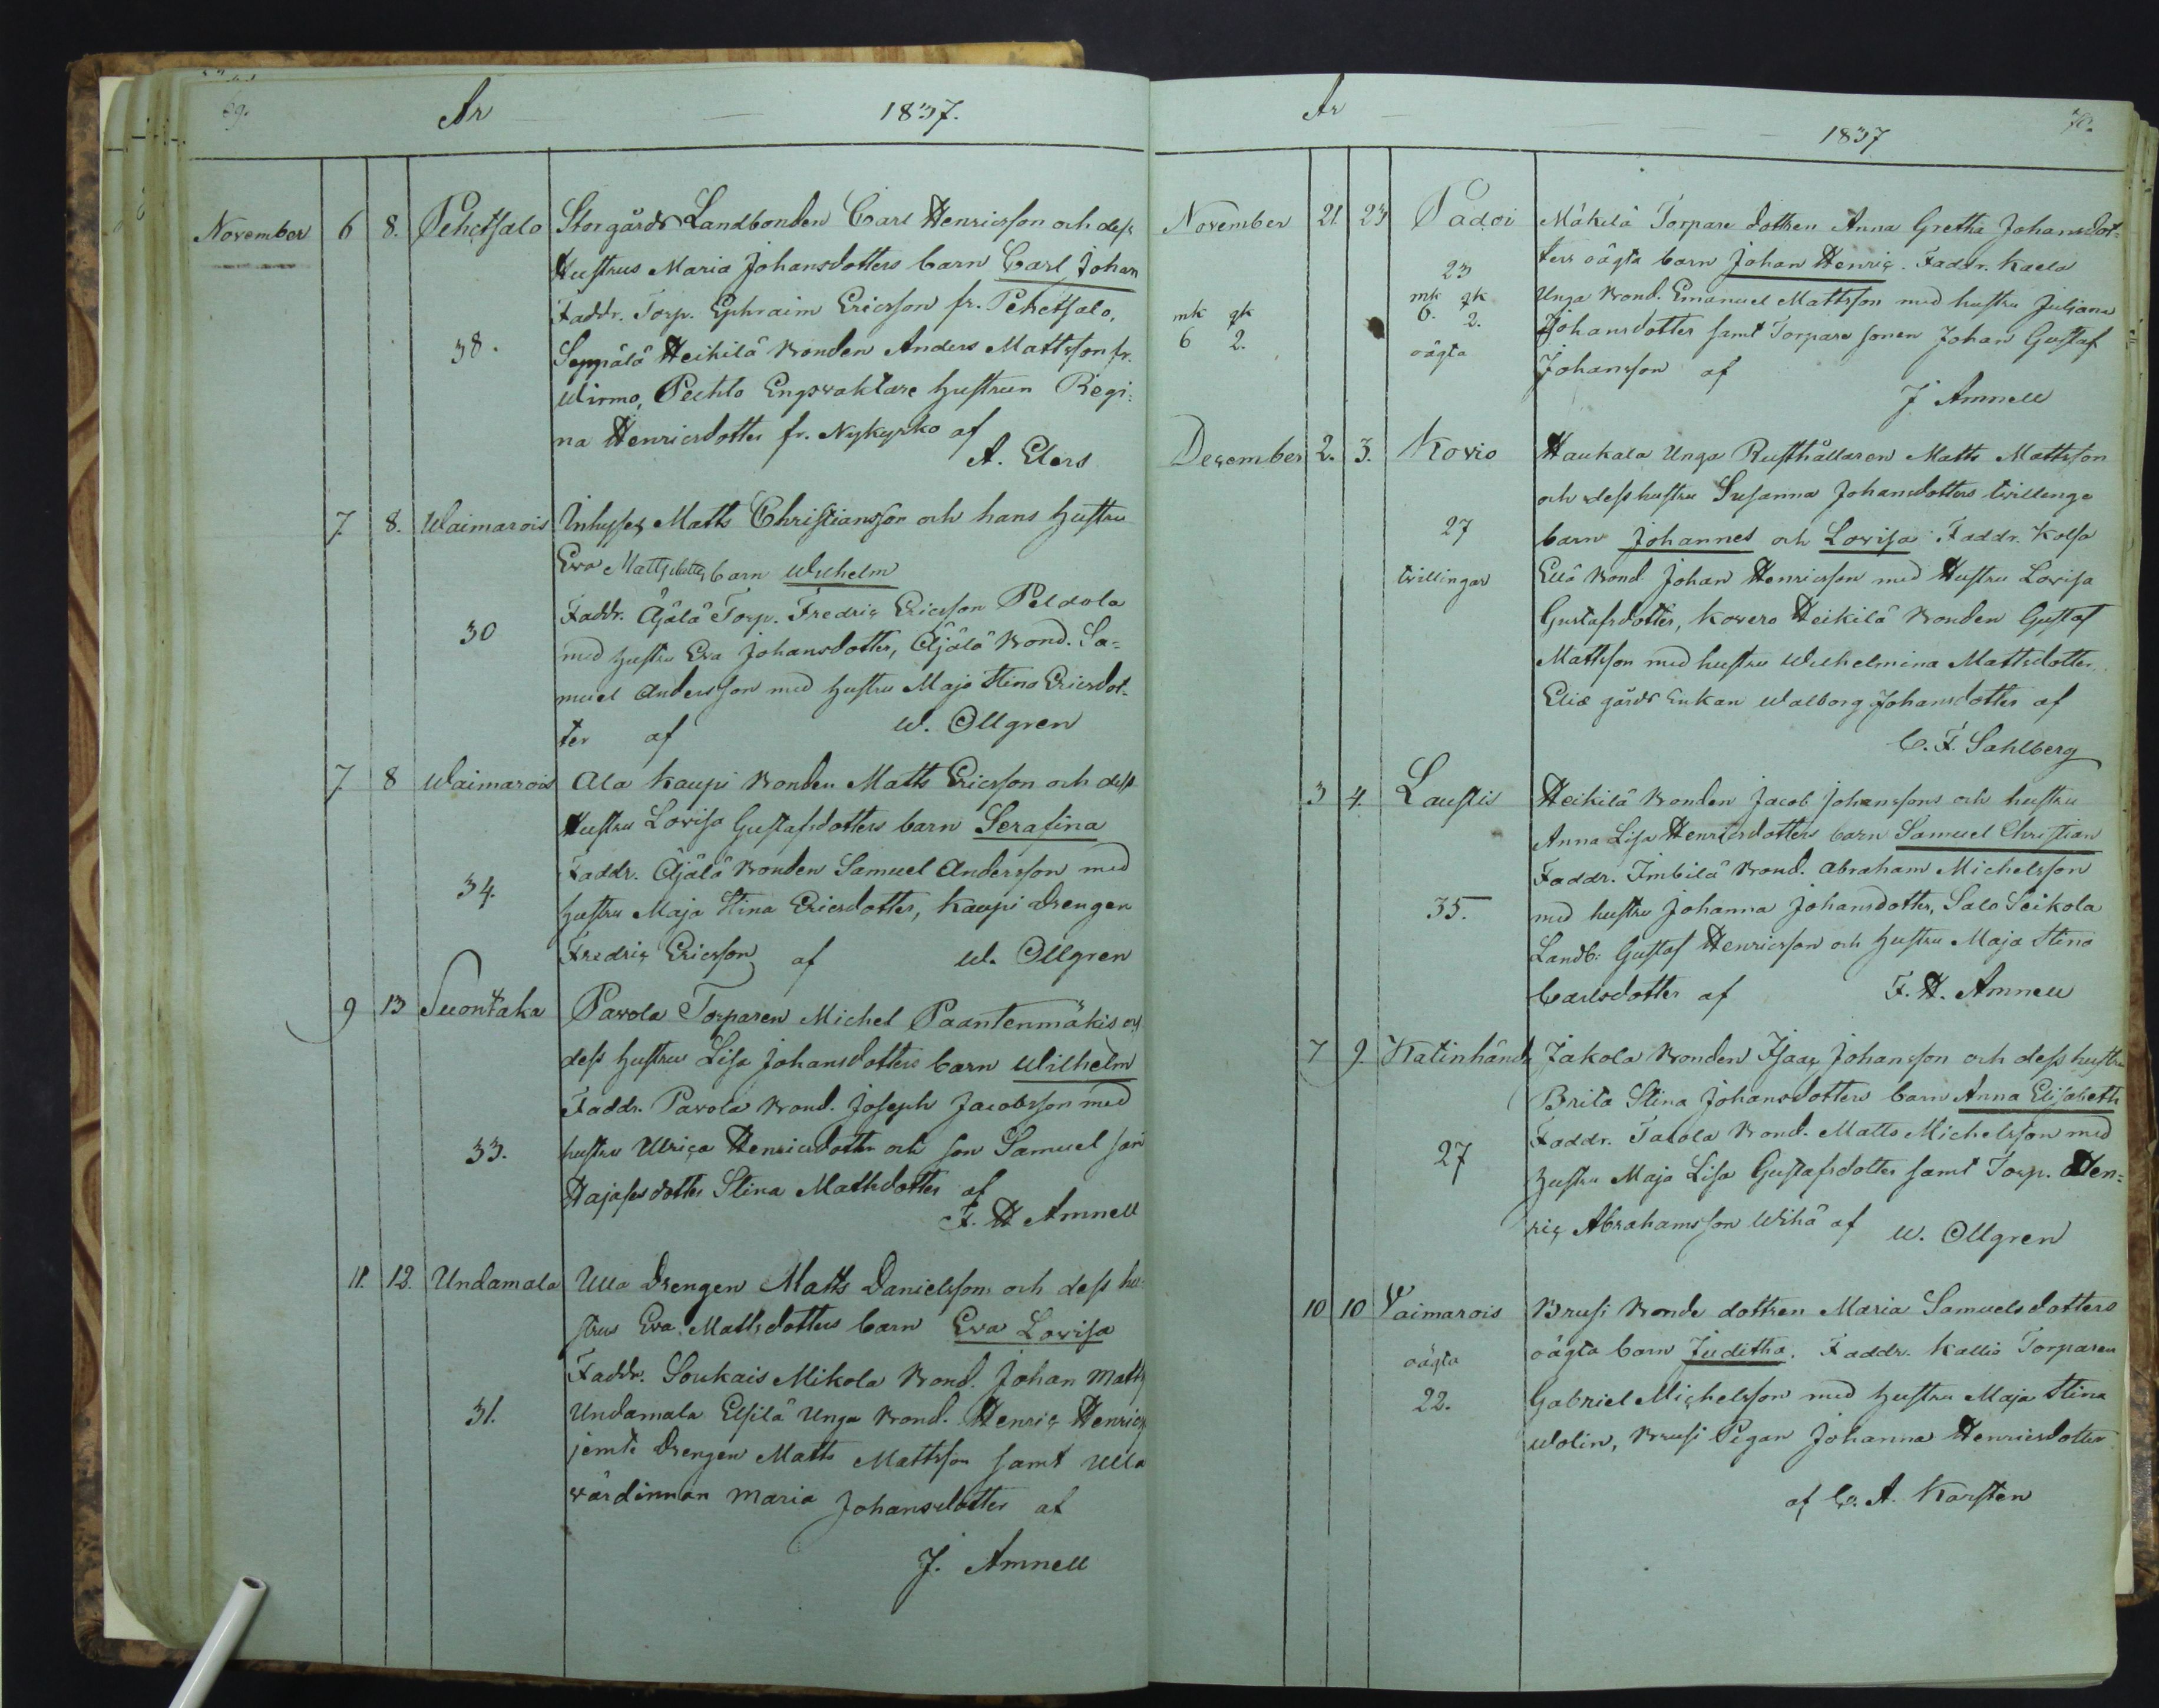 69.
År 1837.
November 6 8. Pehctsalo Storgårds Landbonden Carl Henricsson och dess
Hustrus Maria Johansdotters barn Carl Johan
Faddr. Torp. Ephraim Ericsson fr. Pehctsalo,
38. Seppälä Heikilä Bonden Anders Mattsson fr.
Wirmo, Pechto Engsvaktare hustrun Regi:
na Henricsdotter fr. Nykyrko af
A. Elers
7. 8. Waimarois Inhyses Matts Christiansson och hans hustru
Eva Mattsdotters barn Wilhelm
Faddr. Äjälä Torp. Fredric Ericsson Peldola
30 med hustru Eva Johansdotter, Äjälä Bond. Sa=
muel Andersson med hustru Maja Stina Ericsdot-
ter af W. Ollgren
7. 8 Waimarois Ala Kaupi Bonden Matts Ericsson och dess
Hustru Lovisa Gustafsdotters barn Serafina
Faddr. Äjälä Bonden Samuel Andersson med
34. hustru Maja Stina Ericsdotter, Kaupi Drengen
Fredric Ericsson af W. Ollgren
9 13 Suontaka Pavola Torparen Michel Paantenmäkis och
dess hustrus Lisa Johansdotters barn Wilhelm
Faddr. Pavola Bond. Joseph Jacobsson med
33. hustru Ulrica Henricsdotter och son Samuel
dotter Stina Mattsdotter af
F. H Amnell
11. 12. Undamala Ulla Drengen Matts Danielssons och dess hu-
strus Eva Mattsdotters barn Eva Lovisa
Faddr. Soukais Mikola Bond. Johan Matts
31. Undamala Elsilä Unga Bond. Henric Henrics
jemte Drengen Matts Mattsson samt Ulla
värdinnan Maria Johansdotter af
J. Amnell
År 1837 70.
November 21 23 Padoi Mäkilä Torpare dottren Anna Gretha Johansdot=
ters oägta barn Johan Henric. Faddr. Kaela
23
mk qk
6. 2. Unga Bond. Emanuel Mattsson med hustru Juliana
mk qk
6 2. Johansdotter samt Torpare sonen Johan Gustaf
oägta Johansson af
J Amnell
December 2. 3. Kovio Haukala Unga Rusthållaren Matts Mattsson
och dess hustru Susanna Johansdotters tvillinge
27 barn Johannes och Lovisa Faddr. Kolsa
tvillingar Ellä Bond Johan Henricsson med Hustru Lovisa
Gustafsdotter, Kovero Heikilä Bonden Gustaf
Mattsson med hustru Wilhelmina Mattsdotter,
gårds Enkan Walborg Johansdotter af
C. F. Sahlberg
3 4. Laustis Heikilä Bonden Jacob Johanssons och hustru
Anna Lisa Henricsdotters barn Samuel Christian
Faddr. Imbilä Bond. Abraham Michelsson
35. med hustru Johanna Johansdotter, Salo Seikola
Landb: Gustaf Henricsson och hustru Maja Stina
Carlsdotter af F. H. Amnell
7 9. Katinhända Jakola Bonden Isaac Johansson och dess hustru
Brita Stina Johansdotters barn Anna Elisabeth
Faddr. Jakola Bond. Matts Michelsson med
27 hustru Maja Lisa Gustafsdotter samt Torp. Hen=
ric Abrahamsson Wihä af W. Ollgren
10 10 Vaimarois Brusi Bonde dottren Maria Samuelsdotters
oägta oägta barn Juditha. Faddr. Kallio Torparen
22. Gabriel Michelsson med hustru Maja Stina
Wolin, Brusi Pigan Johanna Henricsdotter
af C. A. Karsten